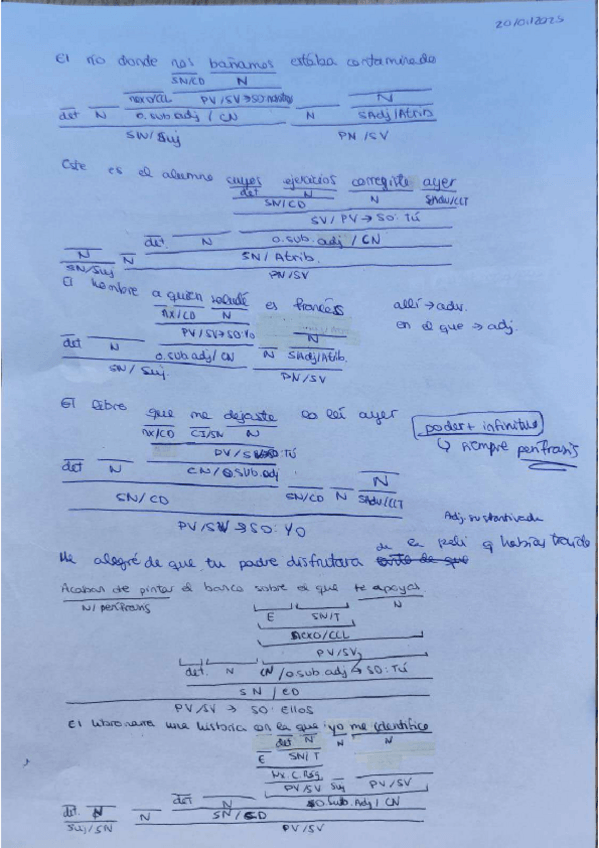 20/01/2025
El río donde nos bañamos estaba contaminado
SN/CD N
nexo/CCL PV/SV → SO: nosotros N
det N o.sub.adj / CN N SAdj/Atrib
SN/Suj PN/SV
Este es el alumno cuyos ejercicios corregiste ayer
det N
SN/CD N SAdv/CCT
SV/PV → SO: Tú
det. N o.sub.adj/CN
N N SN/Atrib.
SN/Suj PN/SV
El hombre a quien saludé es francés allí → adv.
NX/CD N en el que → adj.
PV/SV → SO: Yo N
det N o.sub.adj/CN N SAdj/Atrib.
SN/Suj. PN/SV
El libro que me dejaste lo leí ayer
NX/CD CI/SN N poder + infinitivo
PV/SV SO: TÚ ↳ siempre perífrasis
det N CN/O.sub.adj N
SN/CD SN/CD N SAdv/CCT
PV/SV → SO: YO
Adj. sustantivada
Me alegré de que tu padre disfrutara de la peli q habías traído
Acaban de pintar el banco sobre el que te apoyas
N/perífrasis N
E SN/T
nexo/CCL
PV/SV
det. N CN/o.sub.adj → SO: Tú
SN/CD
PV/SV → SO: Ellos
El libro narra una historia con la que yo me identifico
det N N N
E SN/T
Nx C.Rég
PV/SV Suj PV/SV
det. N N det N O.sub.Adj/CN
SN/CD
Suj/SN PV/SV